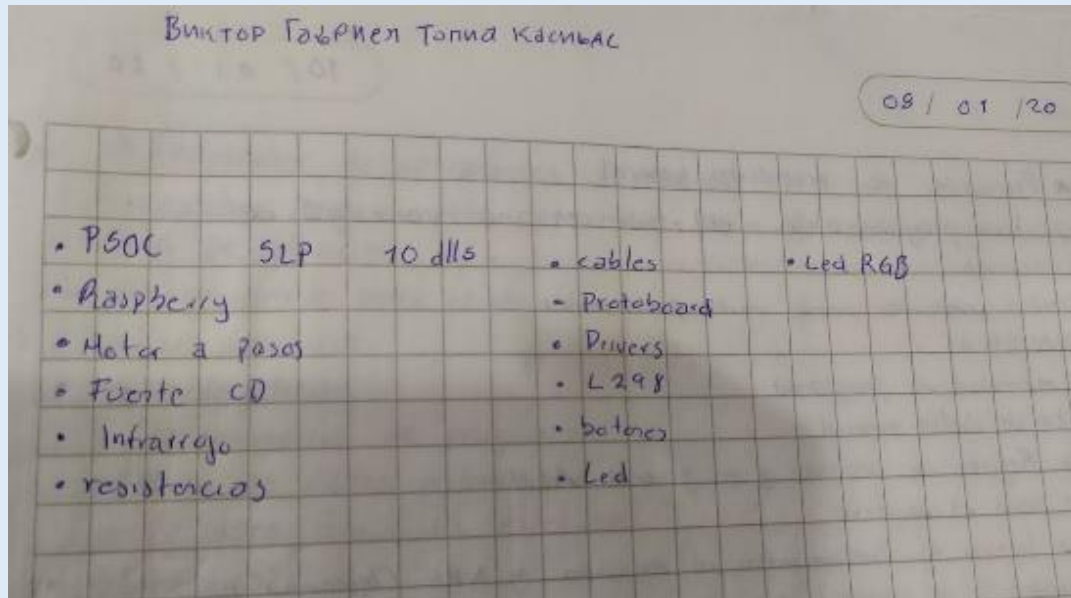 Виктор Габриел Тапиа Касиьас
08 / 01 / 20
• PSOC SLP 10 dlls
• Raspberry
• Motor a pasos
• Fuente CD
• Infrarrojo
• resistencias
• cables
- Protoboard
• Drivers
• L298
• botones
• Led
• Led RGB